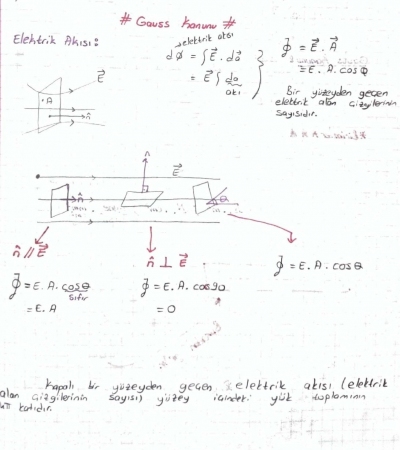 # Gauss Kanunu #
Elektrik Akısı:
elektrik akısı
dΦ = ∫E⃗.da⃗
= E⃗∫da
akı
Φ = E⃗.A⃗
= E.A.cosθ
Bir yüzeyden geçen
elektrik alan çizgilerinin
sayısıdır.
E⃗
A
n̂
n̂
E⃗
n̂
θ
n̂ // E⃗
n̂ ⊥ E⃗
Φ = E.A.cosθ
Φ = E.A.cosθ
sıfır
= E.A
Φ = E.A.cos90
= 0
Kapalı bir yüzeyden geçen elektrik akısı (elektrik
alan çizgilerinin sayısı) yüzey içindeki yük toplamının
4π katıdır.